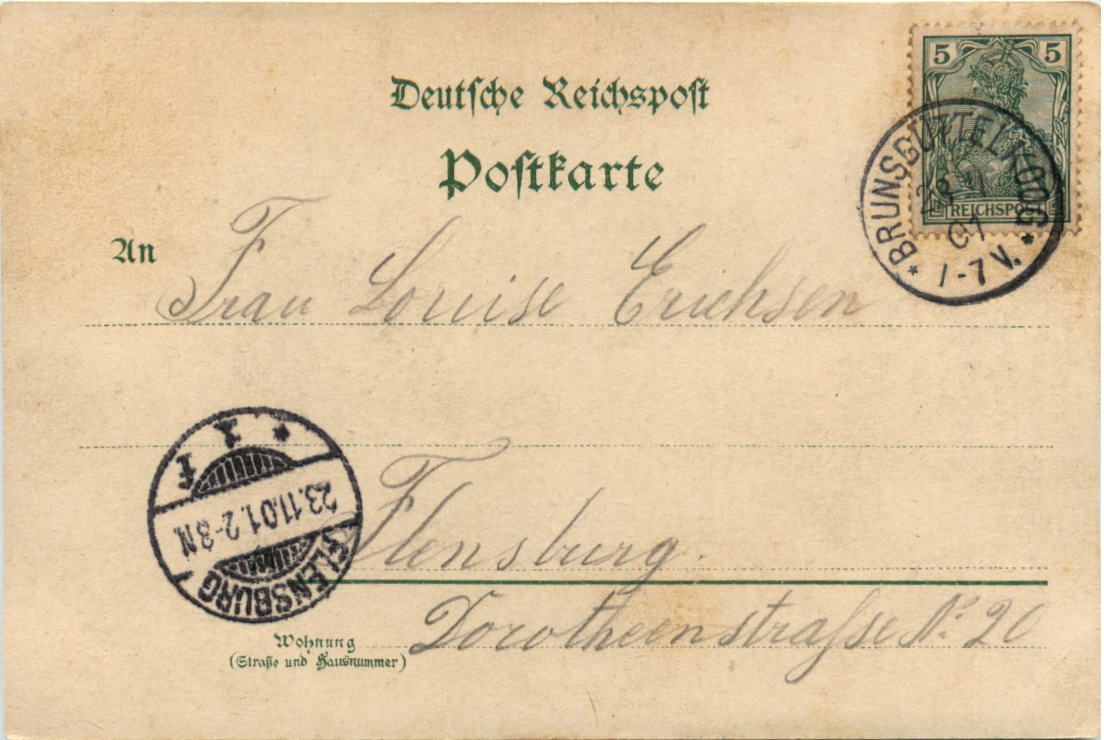 Deutsche Reichspost
Postkarte
5 5
REICHSPOST
* BRUNSBÜTTELKOOG *
01
1-7 V.
An Frau Louise Erichsen
Flensburg.
Dorotheenstraſse No. 20
Wohnung
(Straße und Hausnummer)
* 1 f
23.11.01. 2-3 N.
FLENSBURG 1